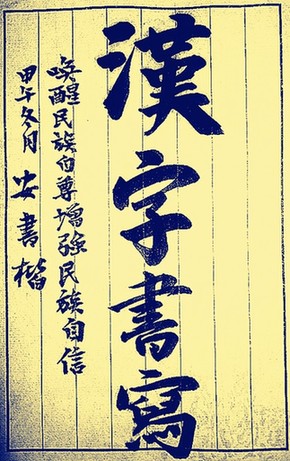 漢字書寫
喚醒民族自尊增強民族自信
甲午冬月 安書楷